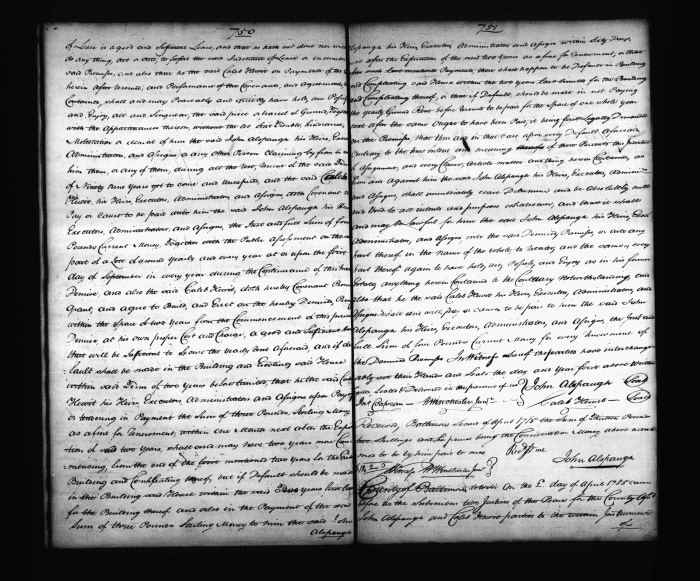 750
of Lease is a good and Sufficient Lease, and that he hath not done nor will
do any thing, act or acts, to forfeit the said Indenture of Lease or incumber
said Premises, and also that he the said Caleb Hewit on Payment of the
herein after reserved, and Performance of the Covenants, and Agreements,
Contained, shall and may Peaceably and quietly have hold, use Possess
and Enjoy, all and Singular, the said piece or parcel of Ground Together
with the Appurtenances thereon, without the let Suit Trouble, hindrance,
Molestation or denial of him the said John Alspaugh his Heirs, Exec
Administrators, and Assigns or any other Person Claiming by from or
him them, or any of them, during all the rest residue of the said Term
of Ninety Nine Years yet to come and Unexpired, and the said Caleb
Hewit, his Heirs, Executors, Administrators, and Assigns doth Covenant to
Pay or Cause to be paid unto him the said John Alspaugh his Heirs
Executors, Administrators, and Assigns, the Just and full Sum of four
Pounds Current Money, Together with the Public Assessment on the
part of a Lot of Ground yearly and every year at or upon the first
day of September in every year during the Continuance of this
Demise, and also the said Caleb Hewit, doth hereby Covenant Prom
Grant, and agree to Build, and Erect on the hereby Demised, Prem
within the space of two Years from the Commencement of this present
Demise at his own proper Cost and Charge, a good and Sufficient
that will be Sufficient to Secure the yearly Rent aforesaid, and if de
fault shall be made in the Building and Erecting said House
within said Term of two Years be low limited, that he the said Cal
Hewit his Heirs, Executors, Administrators and Assigns upon Pay
or tendering in Payment the Sum of three Pounds, Sterling Money
as a fine for Renewment, within One Month next after the Expira
tion of said two Years, shall and may have two Years more Com
mencing from the end of the first mentioned two Years for the
Building and Compleating thereof, but if Default should be made
in the Building said House within the said Two Years first
for the Building thereof and also in the Payment of the said
Sum of three Pounds Sterling Money to him the said John
Alspaugh
751
Alspaugh his Heirs, Executors Administrators and Assigns within Sixty Days,
next after the Expiration of the next two Years as a fine for Renewment, or that
for want last mentioned Payments, there shall happen to be Default in Building
and Compleating said House within the two Years last limited for the Building
and Compleating thereof, or that if Default, should be made in not Paying
the yearly Ground Rent before herein to be paid for the Space of one whole year
next after the same Ought to have been Paid, it being first legally Demanded
on the Premises that then and in that Case upon every Default aforesaid
Contrary to the true intent and meaning of these Presents the present
Assignment, and every Covenant, Article matter and thing herein Contained, as
from and against him the said John Alspaugh his Heirs, Executors, Admin
and Assigns, shall immediately cease Determine and be Absolutely null
and Void to all intents and purposes whatsoever, and then it shall
and may be lawfull for him the said John Alspaugh his Heirs, Exec
Administrators, and Assigns into the said Demised Premises, or into any
part thereof in the name of the whole, to Reenter and the same, or every
part thereof again to have hold, use, Possess, and Enjoy as in his former
Estate, anything herein Contained to the Contrary Notwithstanding, and
also that he the said Caleb Hewit his Heirs, Executors, Administrators, and
Assigns shall and will pay or Cause to be paid to him the said John
Alspaugh his Heirs, Executors, Administrators, and Assigns, the Just and
full Sum of four Pounds Current Money for every Renewment of
the Demised Premises In Witness whereof the parties have interchange
ably set their Hands and Seals the day and year first above Written
Sign Sealed & Delivered in the presence of us } John Alspaugh (Seal)
Caleb Hewit (Seal)
Received, Baltimore
two Shillings and six pence being the Consideration Money above ment
ioned to be by him paid to me
Rec'd me
John Alspaugh
County of Baltimore On the day of April 1785 came
before the Subscribers two Justices of the Peace for the County afd.
John Alspaugh and Caleb Hewit parties to the within Instrument
of